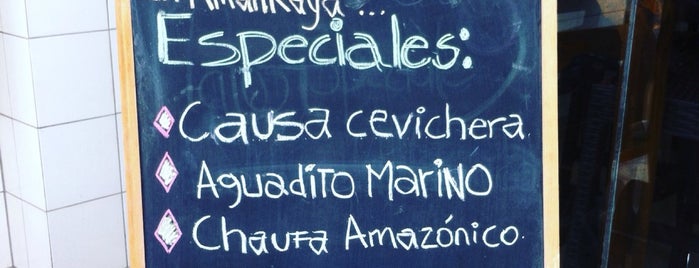 Amankaya...
Especiales:
Causa cevichera
Aguadito Marino
Chaufa Amazónico